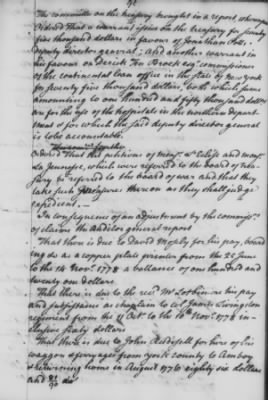 The committee on the treasury brought in a report, whereupon
Ordered That a warrant issue on the treasury for seventy
five thousand dollars in favour of Jonathan Potts,
deputy director general; and another warrant in
his favour on Derick Ten Broeck esqr commissioner
of the continental loan office in the state of New york
for seventy five thousand dollars, both which sums
amounting to one hundred and fifty thousand dollars
on for the use of the hospitals in the northern depart-
ment & for which the said deputy director general
is to be accountable.
Ordered That the petitions of and
La which were referred to the board of trea-
sury be referred to the board of war and that they
take such measures thereon as they shall judge
expedient.
In consequence of an adjustment by the commissrs.
of claims the Auditor general report
That there is due to David Mosely for his pay, board
ing &c as a copper plate printer from the 25 June
to the 14 Novr. 1778 a ballance of one hundred and
twenty one dollars
That there is due to the revd Mr for his pay
and subsistance as chaplain to col James Livingston
regiment from the 11 Octr to the 10th Novr. 1778 in-
clusive sixty dollars
That there is due to John for hire of his
waggon & ferryages from York county to Amboy
& returning home in August 1776 eighty six dollars
and /90 do